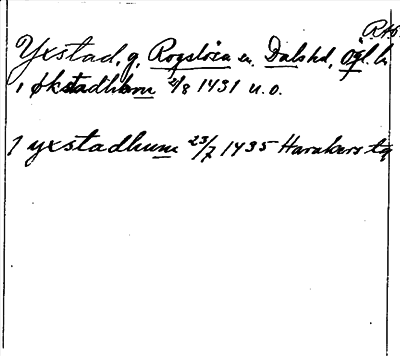 R.Ab.
Yxstad, g, Rogslösa sn. Dalshd, Ögl. l.
i økstadhem 2/8 1431 u. o.
J yxstadhum 23/7 1435 Harakers tg